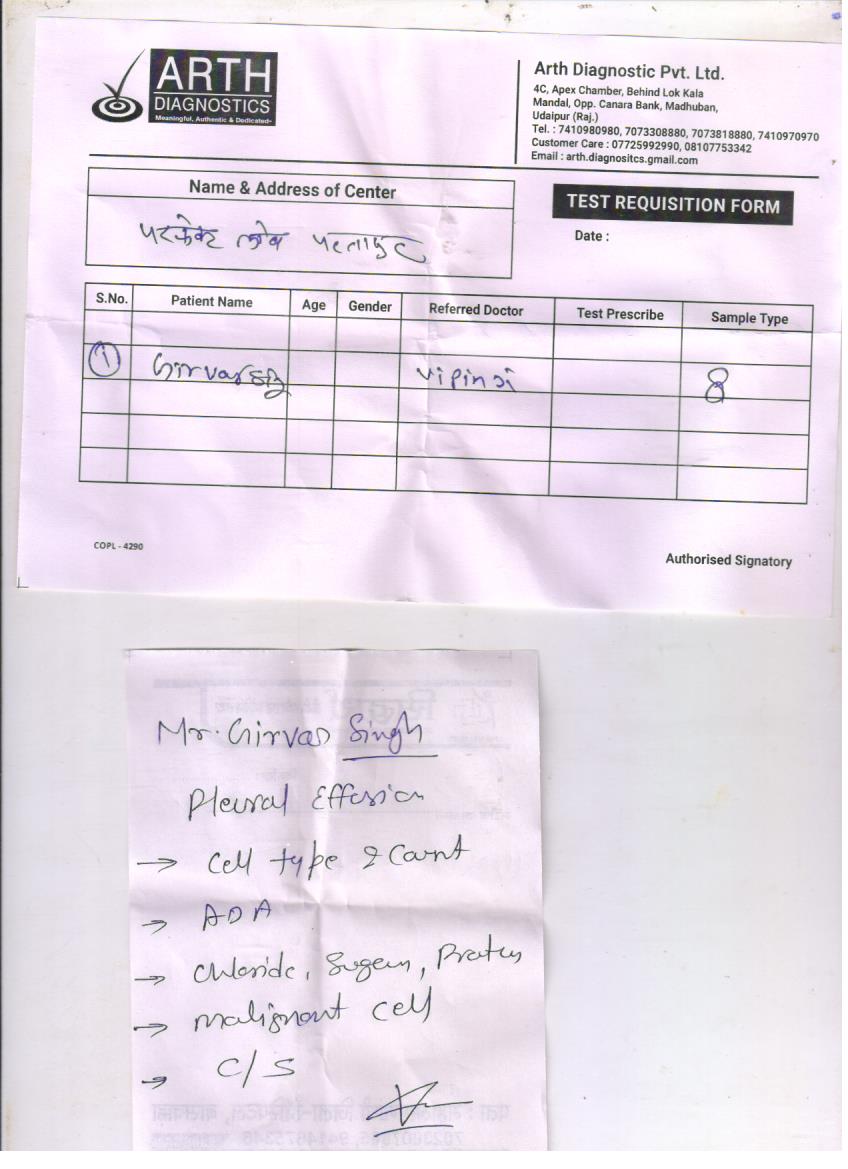 ARTH
DIAGNOSTICS
Meaningful, Authentic & Dedicated-
Arth Diagnostic Pvt. Ltd.
4C, Apex Chamber, Behind Lok Kala
Mandal, Opp. Canara Bank, Madhuban,
Udaipur (Raj.)
Tel. : 7410980980, 7073308880, 7073818880, 7410970970
Customer Care : 07725992990, 08107753342
Email : arth.diagnositcs.gmail.com
Name & Address of Center
परफेक्ट लेब परतापुर
TEST REQUISITION FORM
Date :
S.No. Patient Name Age Gender Referred Doctor Test Prescribe Sample Type
1 Girvar सिंह vipin जी 8
COPL - 4290
Authorised Signatory
Mr. Girvar Singh
Pleural Effusion
→ Cell type & Count
→ ADA
→ Chloride, Sugar, Protein
→ Malignant cell
→ C/S